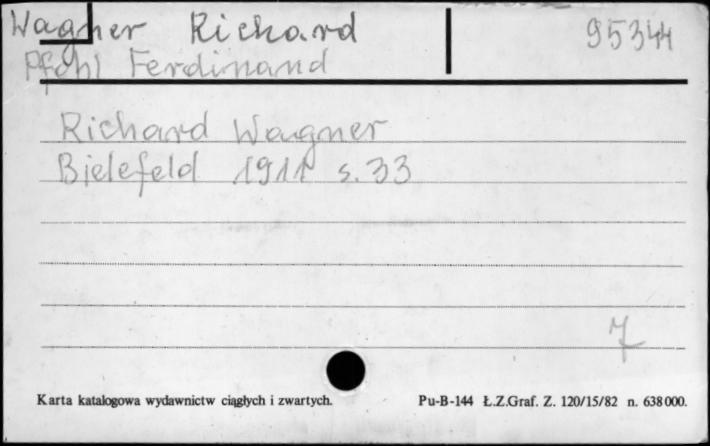 Wagner Richard 95344
Pfohl Ferdinand
Richard Wagner
Bielefeld 1911 s. 33
7
Karta katalogowa wydawnictw ciągłych i zwartych. Pu-B-144 Ł.Z.Graf. Z. 120/15/82 n. 638000.